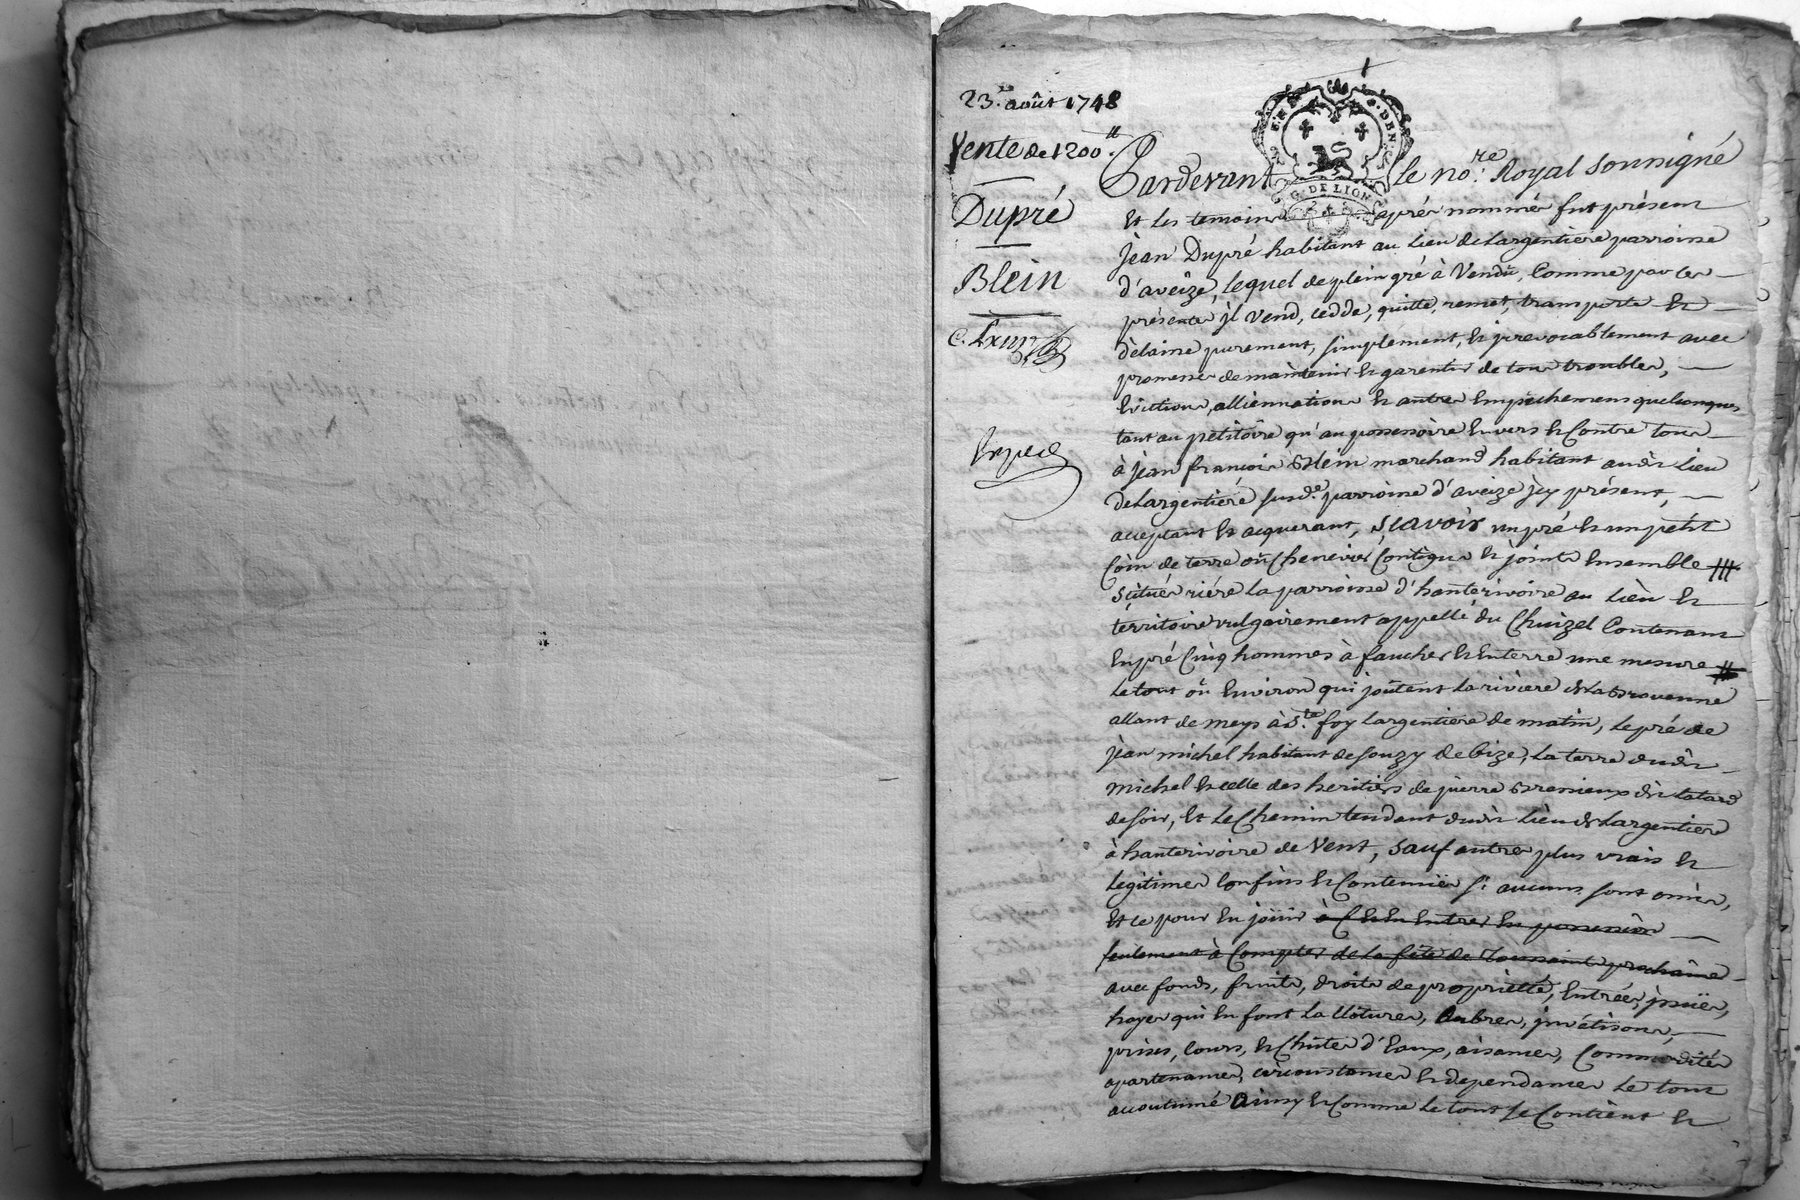 23. août 1748
Vente de 1200.ll
Dupré
Blein
Exped
G. DE LION
Pardevant le no.re Royal soussigné
Et les temoins après nommés fut présent
jean Dupré habitant au Lieu de Largentiere parroisse
d'aveize, lequel de plein gré à Vendû, Comme par ces
présentes jl Vend, cedde, quitte, remet, transporte Et
délaisse purement, simplement, Et jrrevocablement avec
promesse de maintenir Et garentir de tous troubles,
Evictions, alliennations Et autres Empêchemens quelconques
tant au pétitoire qu'au possessoire Envers Et Contre tous
à jean françois Blein marchand habitant audit Lieu
de Largentiére susd.e parroisse d'aveize jcy présent,
acceptant Et acquerant, sçavoir un pré Et un pétit
Coin de terre où Chenevier Contigus Et joints Ensemble
scitués riére La parroisse d'hauterivoire au Lieu Et
térritoire vulgairement appellé du Chuizel Contenant
En pré Cinq hommes à faucher Et En terre une mesure
Le tout où Environ qui joûtent La riviere de La Bravenne
allant de meys à S.te foy Largentiere de matin, Le pré de
jean michel habitant de souzy de bize, La terre dudit
michel Et celle des heritiers de pierre Bressieux dit Latard
de soir, Et Le Chemin tendant dudit Lieu de Largentiere
à hauterivoire de Vent, sauf autres plus vrais Et
Legitimes Confins Et Contenües si aucuns sont omis,
Et ce pour En joüir à C Et En Entrer En possession
seulement à Compter de La fête de Toussaints prochaine
avec fonds, fruits, droits de proprieté, Entrées, jssuës,
hayes qui En font La Clôture, Aubres,
prises, Cours, Et Chûtes d'Eaux, aisances, Commodités
apartenances, circonstances Et dependances Le tout
accoutumé Ainsy Et Comme Le tout se Contient Et